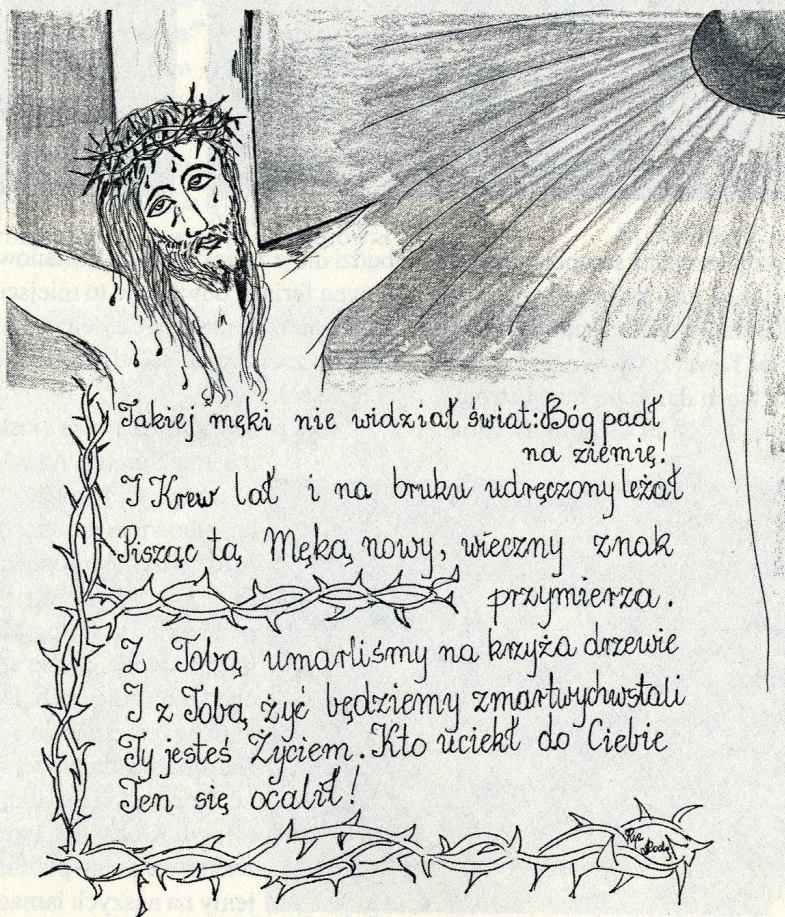 Takiej męki nie widział świat: Bóg padł
na ziemię!
I Krew lał i na bruku udręczony leżał
Pisząc tą Męką nowy, wieczny znak
przymierza.
Z Tobą umarliśmy na krzyża drzewie
I z Tobą żyć będziemy zmartwychwstali
Ty jesteś Życiem. Kto uciekł do Ciebie
Ten się ocalił!